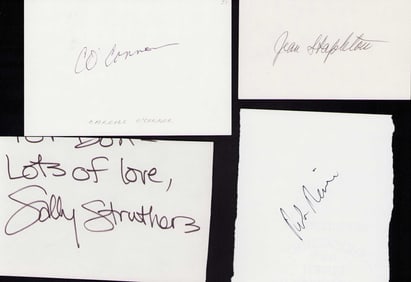 CO'Connor
CARROLL O'CONNOR
Jean Stapleton
For Don-
Lots of love,
Sally Struthers
Rob Reiner